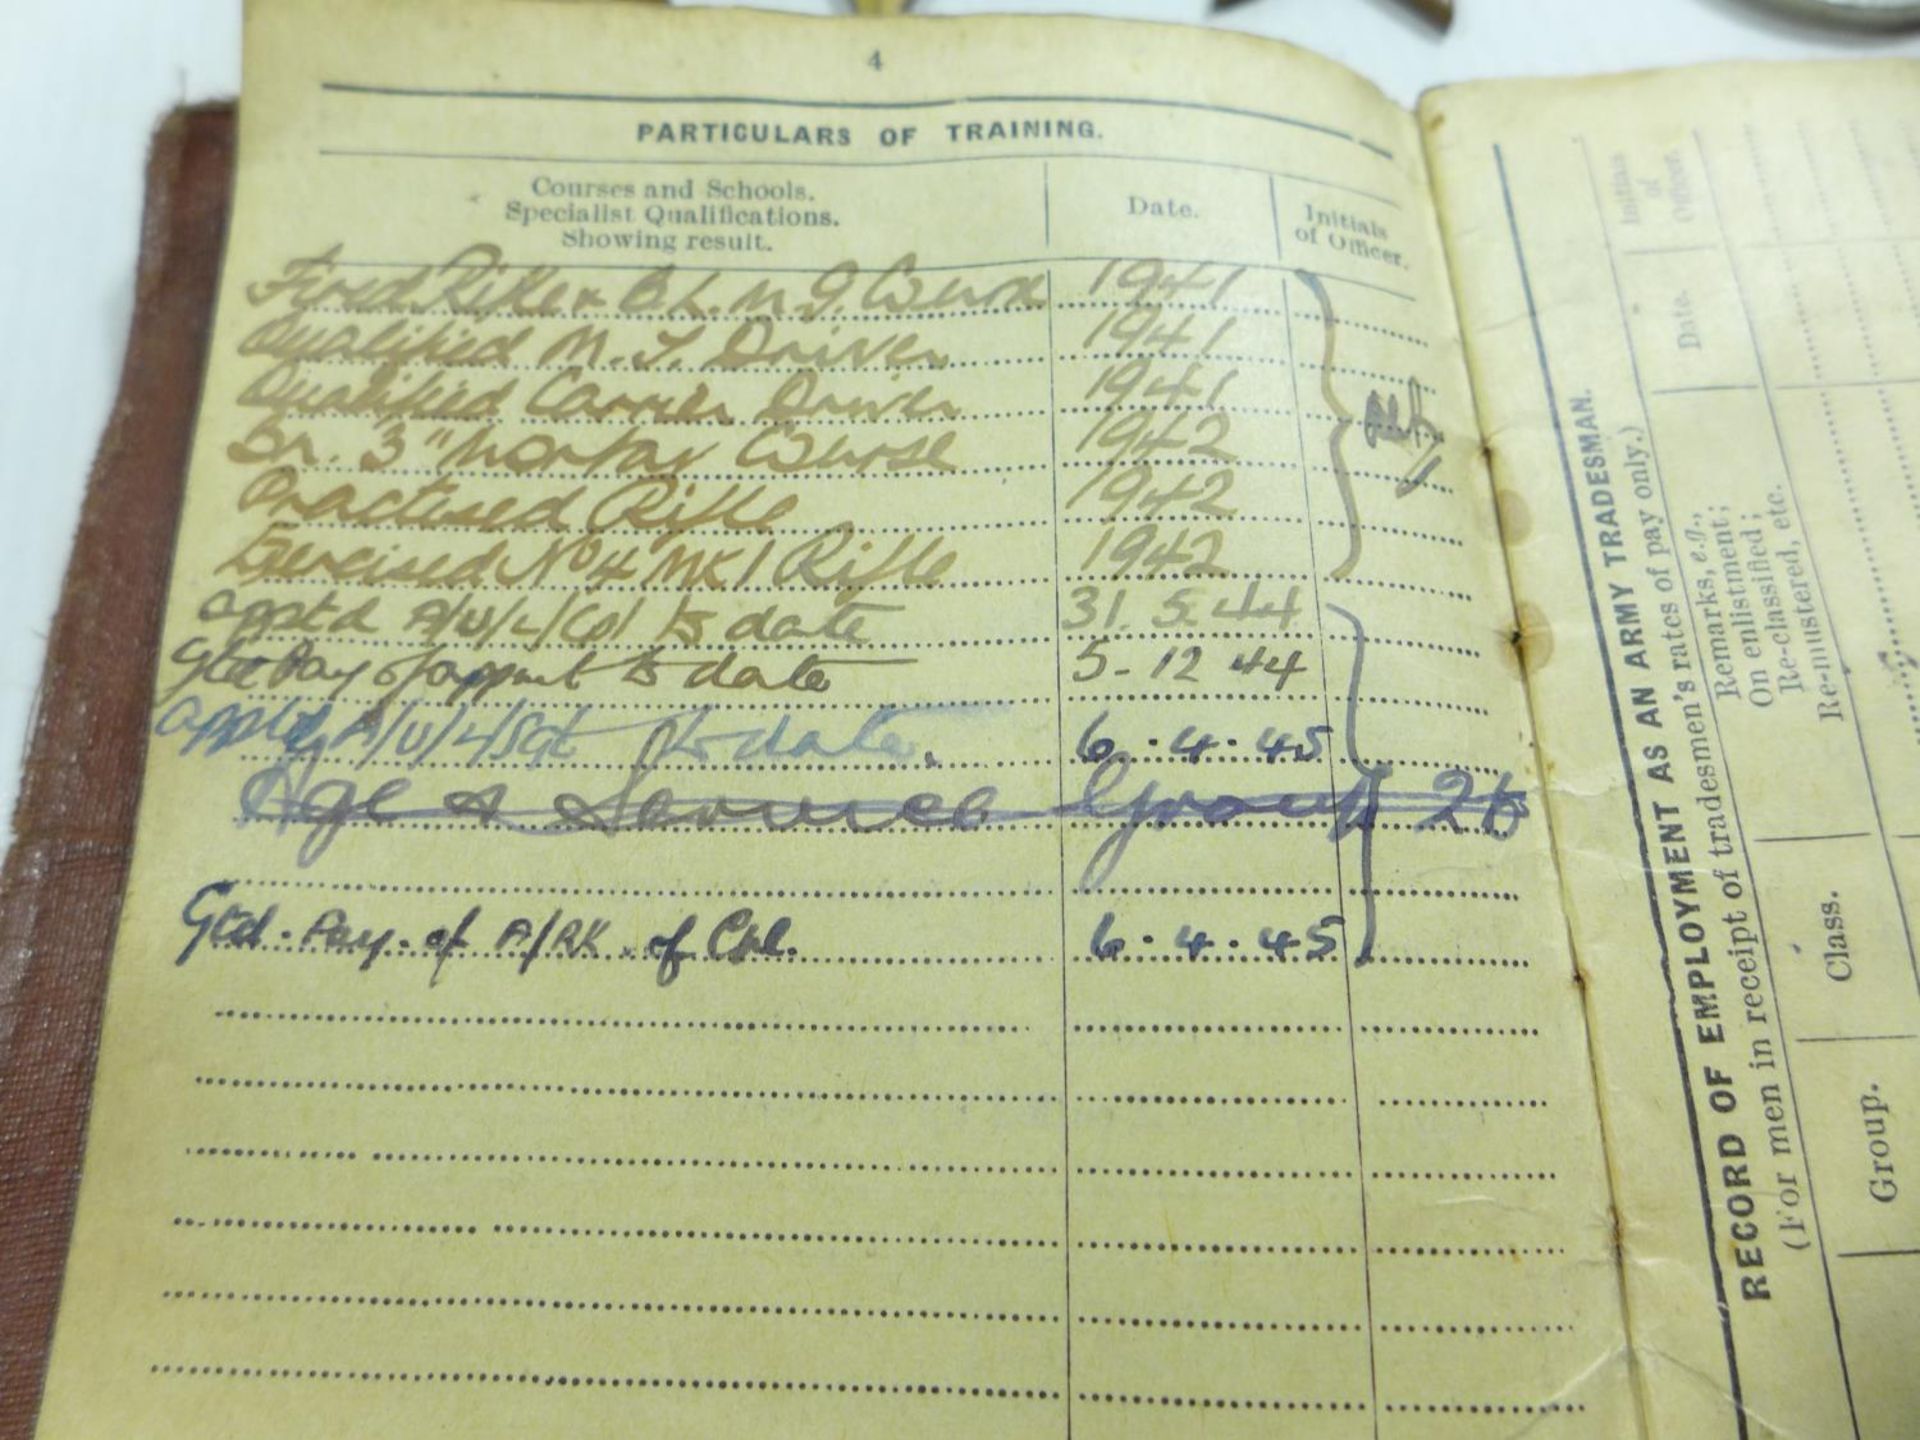 4
PARTICULARS OF TRAINING.
Courses and Schools.
Specialist Qualifications.
Showing result.
Date.
Initials
of Officer.
Fired Rifle & B.L.M.G. Course 1941
Qualified M.T. Driver 1941
Qualified Carrier Driver 1941
3" Mortar Course 1942
Practised Rifle 1942
Exercised No 4 MK 1 Rifle 1942
apptd A/U/L/Cpl to date 31.5.44
Gtd Pay of appmt to date 5-12 44
apptd A/U/L/Sgt to date. 6.4.45
Age & Service Group 26
Gtd. Pay. of A/RK. of Cpl. 6.4.45
RECORD OF EMPLOYMENT AS AN ARMY TRADESMAN.
(For men in receipt of tradesmen's rates of pay only.)
Group.
Class.
Remarks, e.g.,
On enlistment;
Re-classified;
Re-mustered, etc.
Date.
Initials
of
Officer.